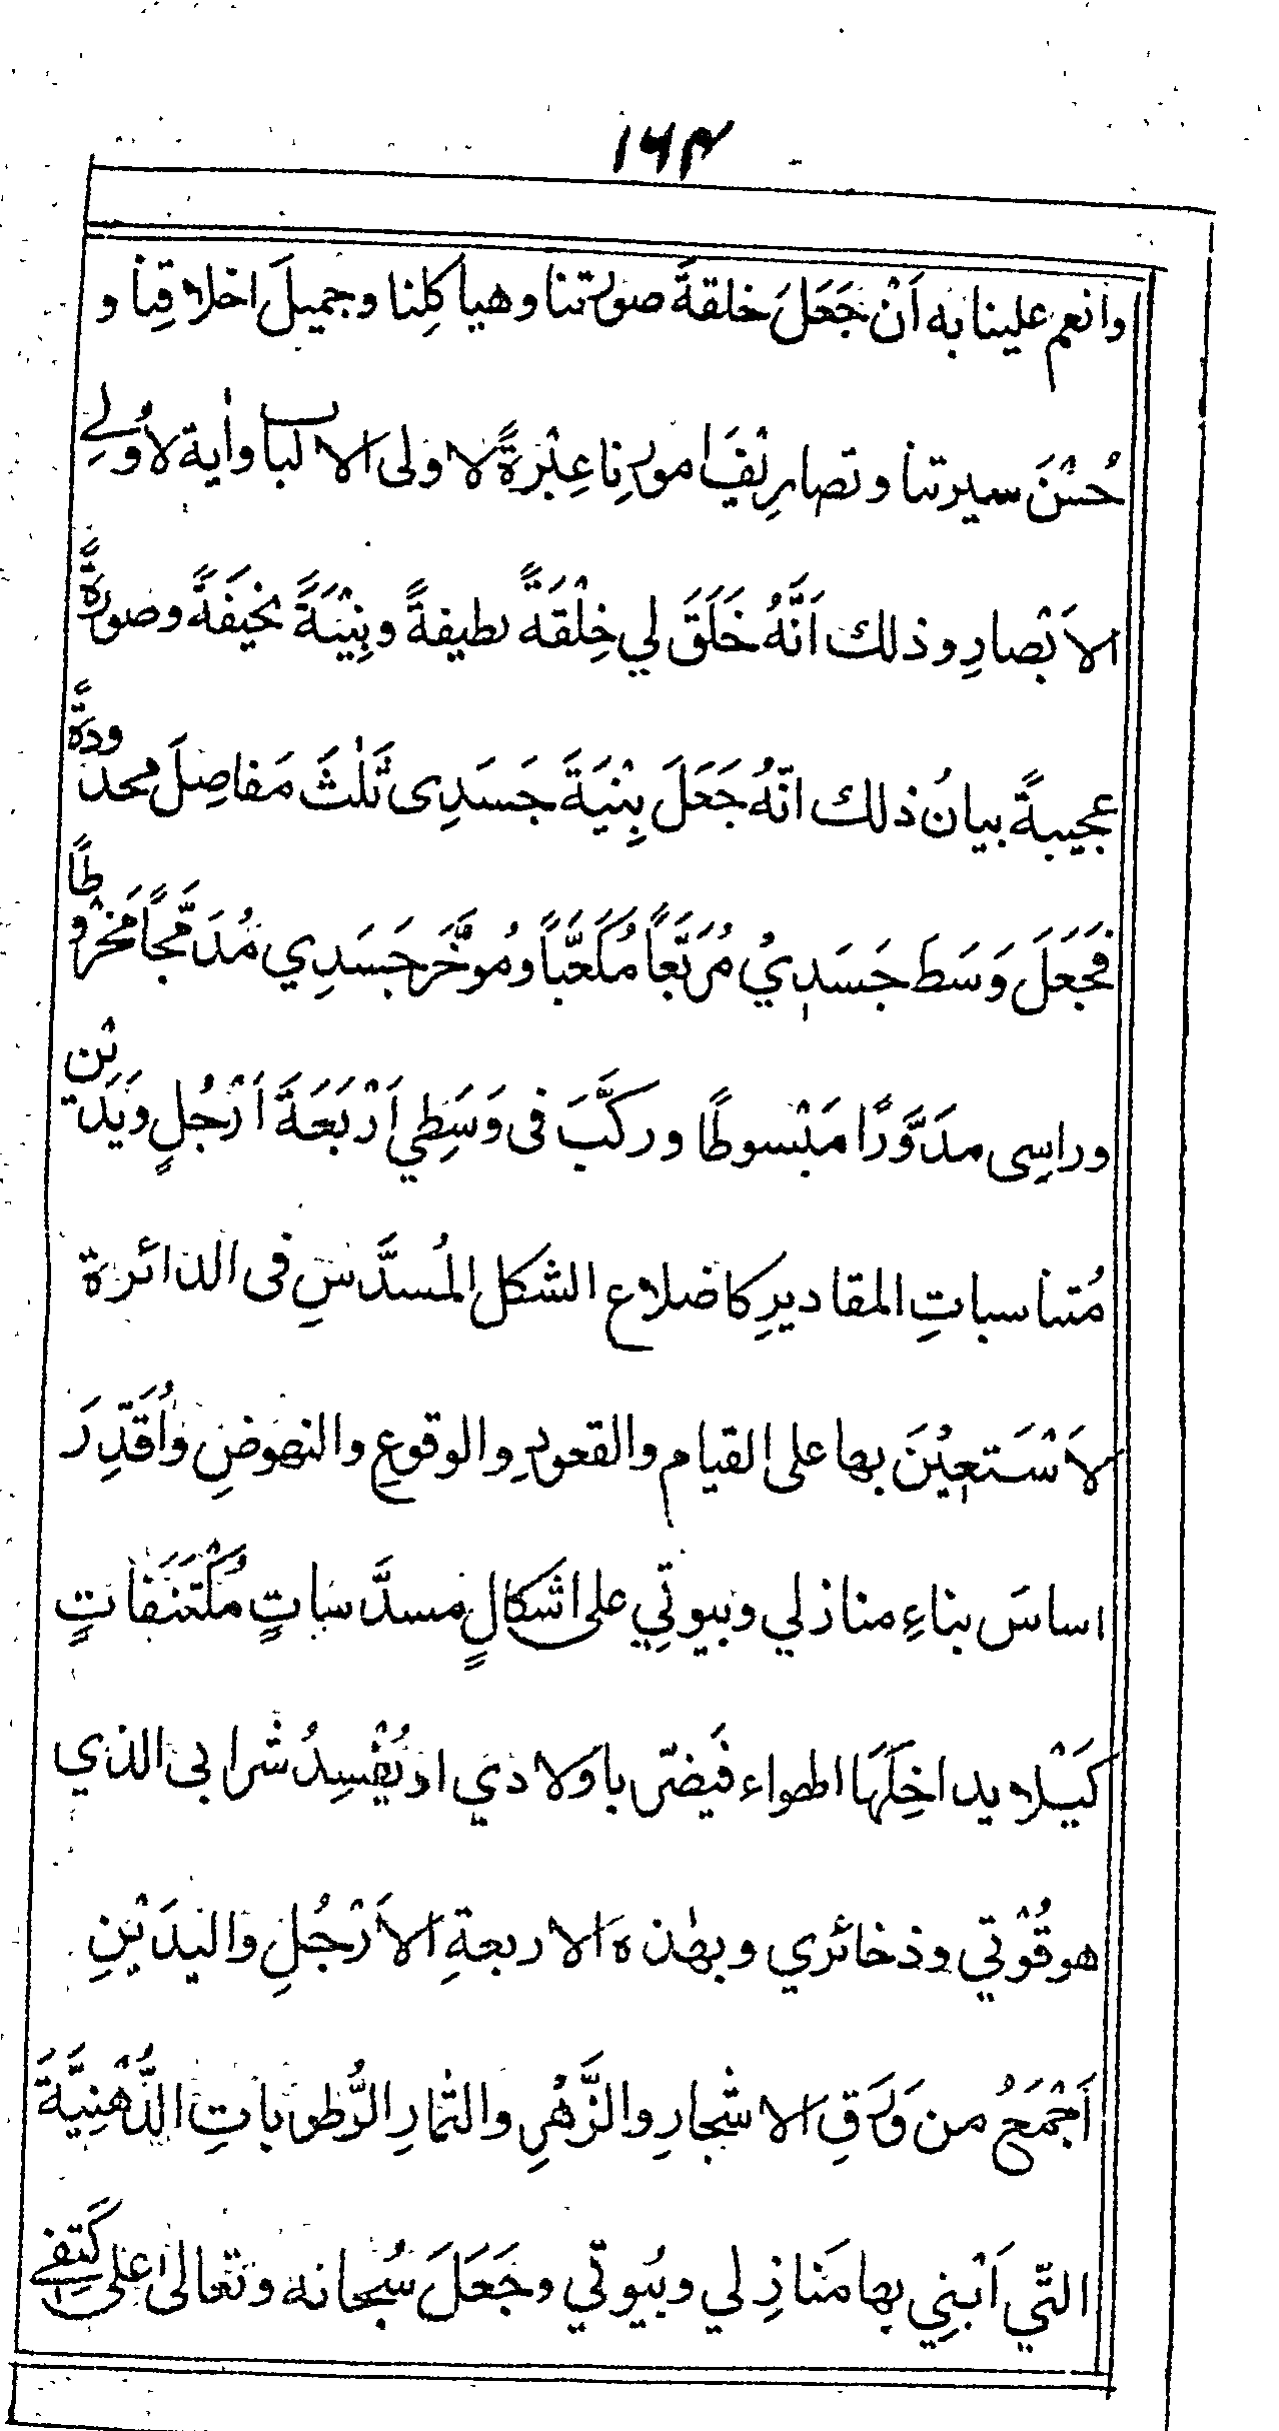 ۱۶۴
وانعم علينا به اَنْ جَعَلَ خلقةَ صورتنا وهياكلِنا وجميلَ اخلاقِنا و
حُسْنَ سيرتنا وتصارِيْفَ امورِنا عِبْرَةً لاولى الالباب واٰية لاُولِے
الاَبْصارِ وذلك اَنَّهُ خَلَقَ لي خِلْقَةً لطيفةً وبِنْيَةً نحيْفَةً وصورةً
عجيبةً بيانُ ذلك انّهُ جَعَلَ بِنْيَةَ جَسَدِى ثَلٰثَ مَفاصِلَ محدودةً
فجَعَلَ وَسَطَ جَسَدِيْ مُرَبَّعاً مُكَعَّباً ومُؤَخَّرَ جَسَدِي مُدَمَّجاً مَخْرُوطًا
وراسِى مدَوَّرًا مَبْسوطًا وركَّبَ فى وَسَطِي اَرْبَعَةَ اَرْجُلٍ وَيَدَيْنِ
مُتناسباتِ المقاديرِ كاضلاع الشكل المُسدَّسِ فى الدائرة
لاَسْتَعِيْنَ بها على القيام والقعودِ والوقوعِ والنهوضِ واُقَدِّرَ
اساسَ بناءِ منازلي وبيوتِي على اشكالٍ مسدَّساتٍ مُكْتَنَفاتٍ
كَيْلا يداخِلَهَا الهواء فيَضرّ باولادي او يُفْسِدُ شرابى الذي
هو قُوْتي وذخائري وبهٰذه الاربعةِ الاَرْجُلِ واليدَيْنِ
اَجْمَعُ من وَرَقِ الاشجارِ والزَّهْرِ والثمارِ الرُّطوباتِ الدُّهْنِيَّةَ
التّي اَبْنِي بها مَنازِلي وبُيوتي وجَعَلَ سُبحانه وتعالى على كَتِفِے